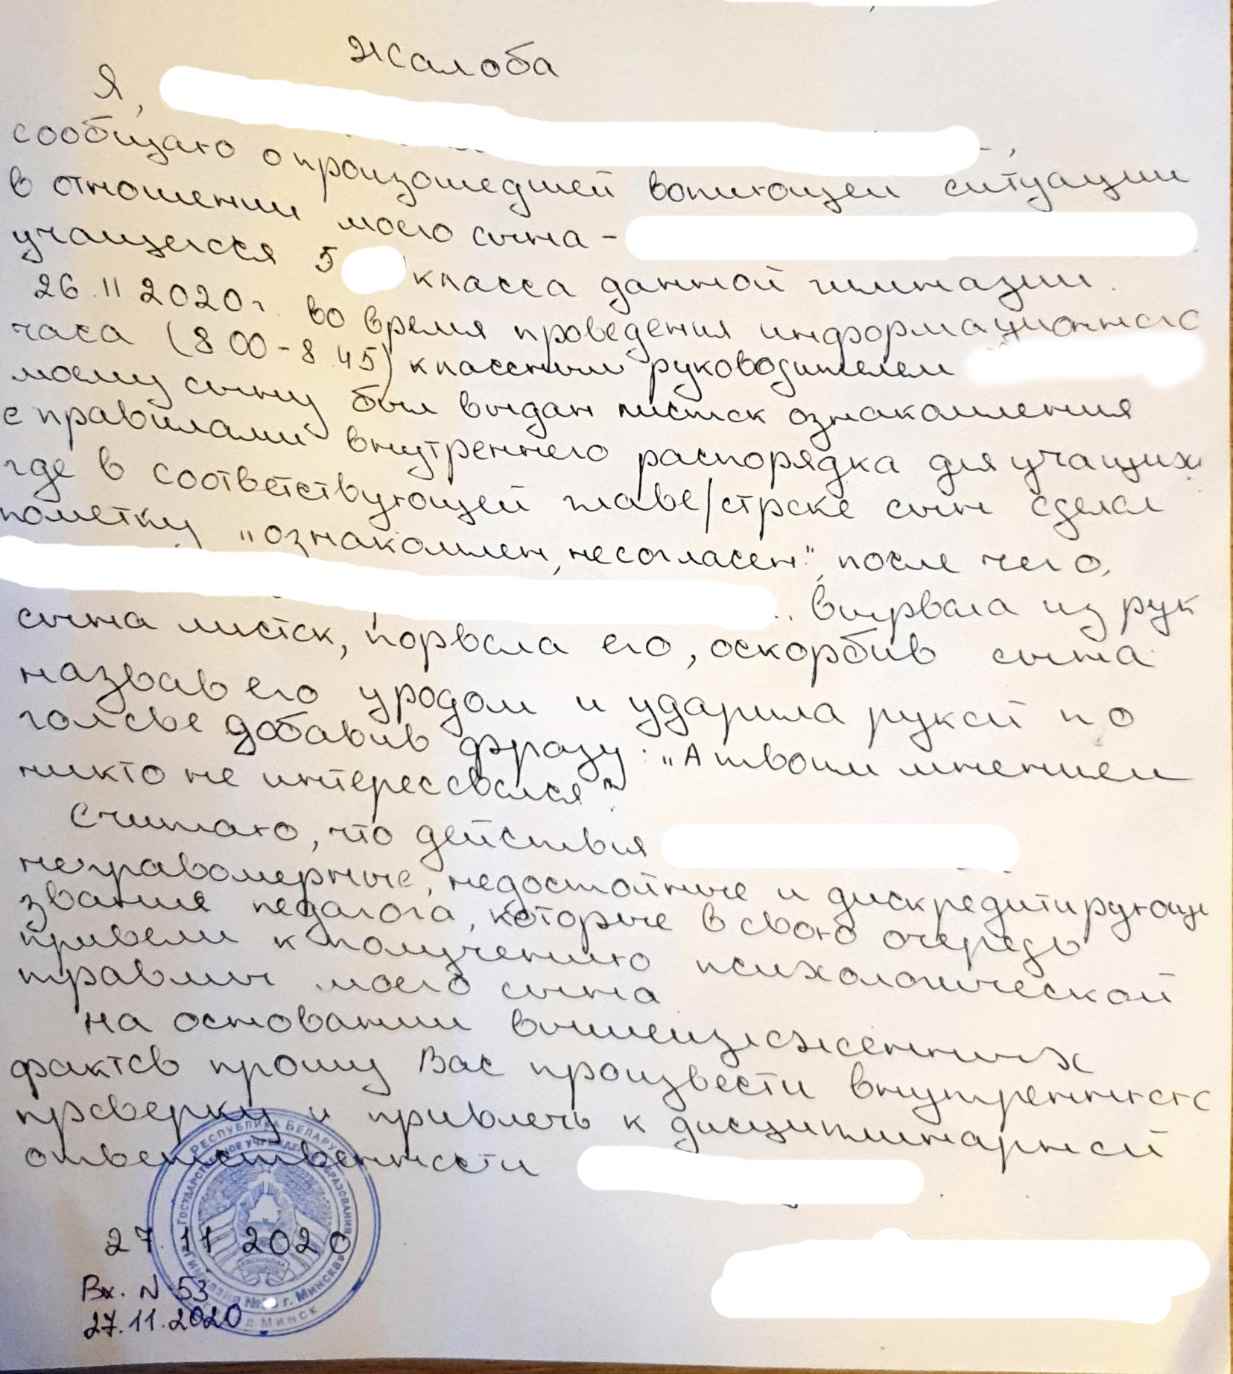 Жалоба
Я,
сообщаю о произошедшей вопиющей ситуации
в отношении моего сына -
учащегося 5 класса данной гимназии.
26.11 2020 г. во время проведения информационного
часа (8 00 - 8.45) классным руководителем
моему сыну был выдан листок ознакомления
с правилами внутреннего распорядка для учащихс
где в соответствующей главе/строке сын сделал
пометку "ознакомлен, несогласен", после чего,
вырвала из рук
сына листок, порвала его, оскорбив сына
назвав его уродом и ударила рукой по
голове добавив фразу: "А твоим мнением
никто не интересовался"
Считаю, что действия
неправомерные, недостойные и дискредитирующи
звания педагога, которые в свою очередь
привели к получению психологической
травмы моего сына
На основании вышеизложенных
фактов прошу Вас произвести внутреннюю
проверку и привлечь к дисциплинарной
ответственности
27.11 2020
Вх. N 53
27.11.2020
РЕСПУБЛИКА БЕЛАРУСЬ
ГОСУДАРСТВЕННОЕ УЧРЕЖДЕНИЕ ОБРАЗОВАНИЯ
Гимназия № г. Минска
г. Минск